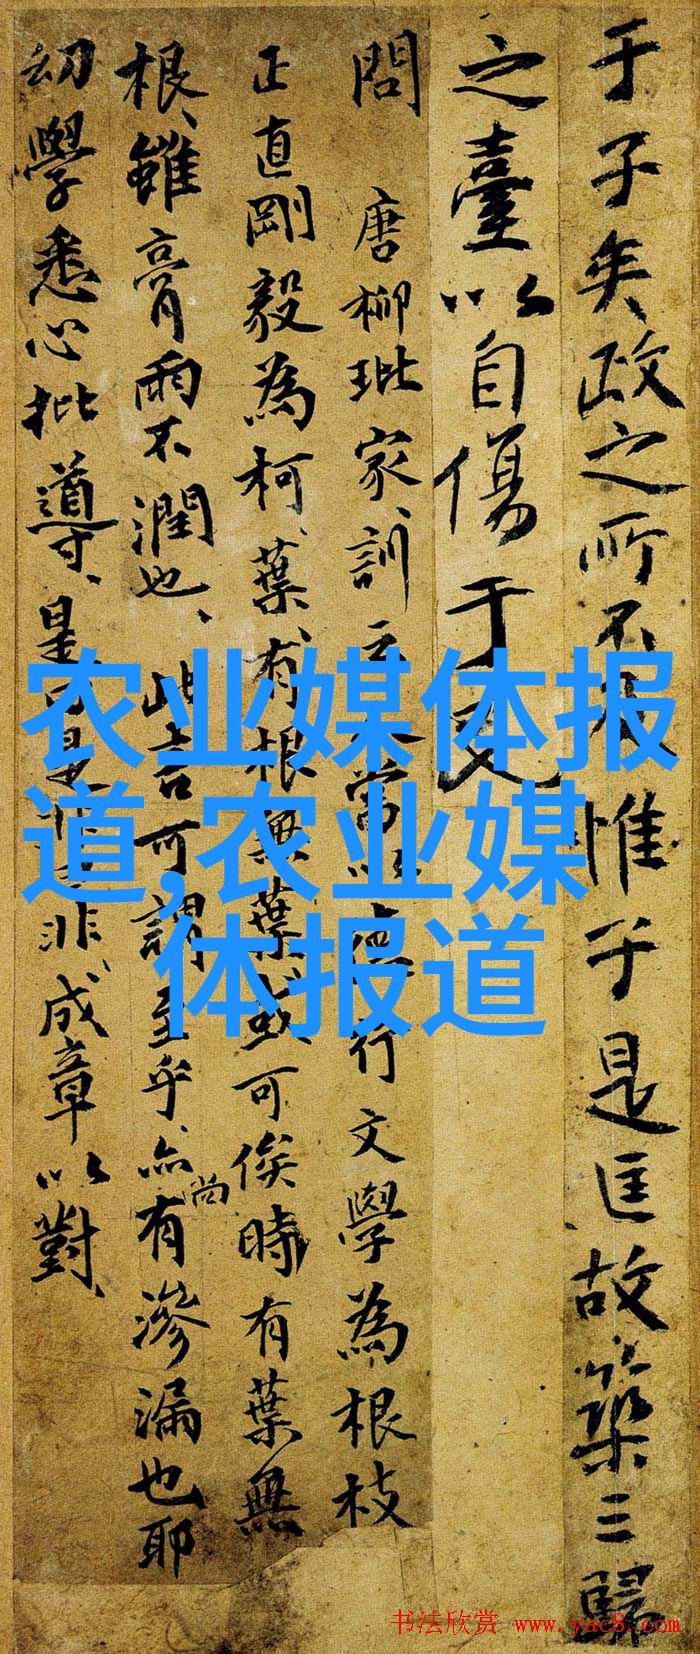 于子矣政之所不及惟于是匡故築三歸
之臺以自傷于民
問 唐柳玭家訓云常以德行文學為根枝
正直剛毅為柯葉有根無葉或可俟時有葉無
根雖膏雨不潤也此言可謂至乎亦尚有滲漏也耶
幼學悉心批導是是非非成章以對
农业媒体报
道,农业媒
体报道
书法欣赏 www.yac8.com